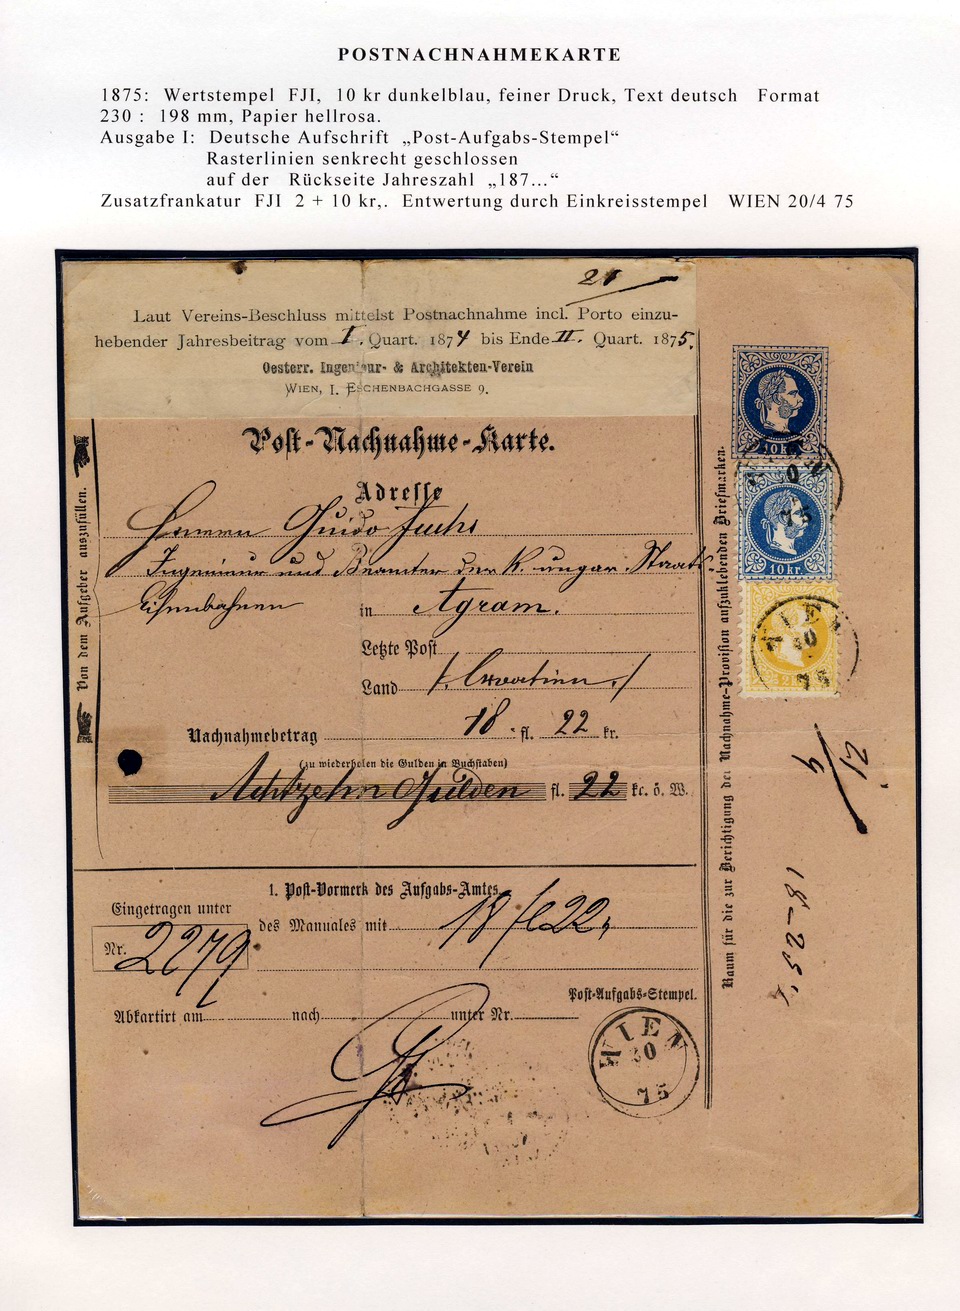 POSTNACHNAHMEKARTE
1875: Wertstempel FJI, 10 kr dunkelblau, feiner Druck, Text deutsch Format
230 : 198 mm, Papier hellrosa.
Ausgabe I: Deutsche Aufschrift „Post-Aufgabs-Stempel“
Rasterlinien senkrecht geschlossen
auf der Rückseite Jahreszahl „187...“
Zusatzfrankatur FJI 2 + 10 kr,. Entwertung durch Einkreisstempel WIEN 20/4 75
21
Laut Vereins-Beschluss mittelst Postnachnahme incl. Porto einzu-
hebender Jahresbeitrag vom I. Quart. 1874 bis Ende II. Quart. 1875.
Oesterr. Ingenieur- & Architekten-Verein
WIEN, I. ESCHENBACHGASSE 9.
Post-Nachnahme-Karte.
Adresse
Herrn Guido Fuchs
Ingenieur und Beamter der K. ungar. Staats-
Eisenbahnen in Agram.
Letzte Post
Land /: Croatien :/
Nachnahmebetrag 18 fl. 22 kr.
(zu wiederholen die Gulden in Buchstaben)
Achtzehn Gulden fl. 22 kr. ö. W.
1. Post-Vormerk des Aufgabs-Amtes.
Eingetragen unter
Nr. 2279
des Manuales mit 18 fl 22
Abkartirt am nach unter Nr.
Post-Aufgabs-Stempel.
WIEN
20
75
Von dem Aufgeber auszufüllen.
Raum für die zur Berichtigung der Nachnahme-Provision aufzuklebenden Briefmarken.
10 kr.
10 kr.
2 kr.
WIEN
20
75